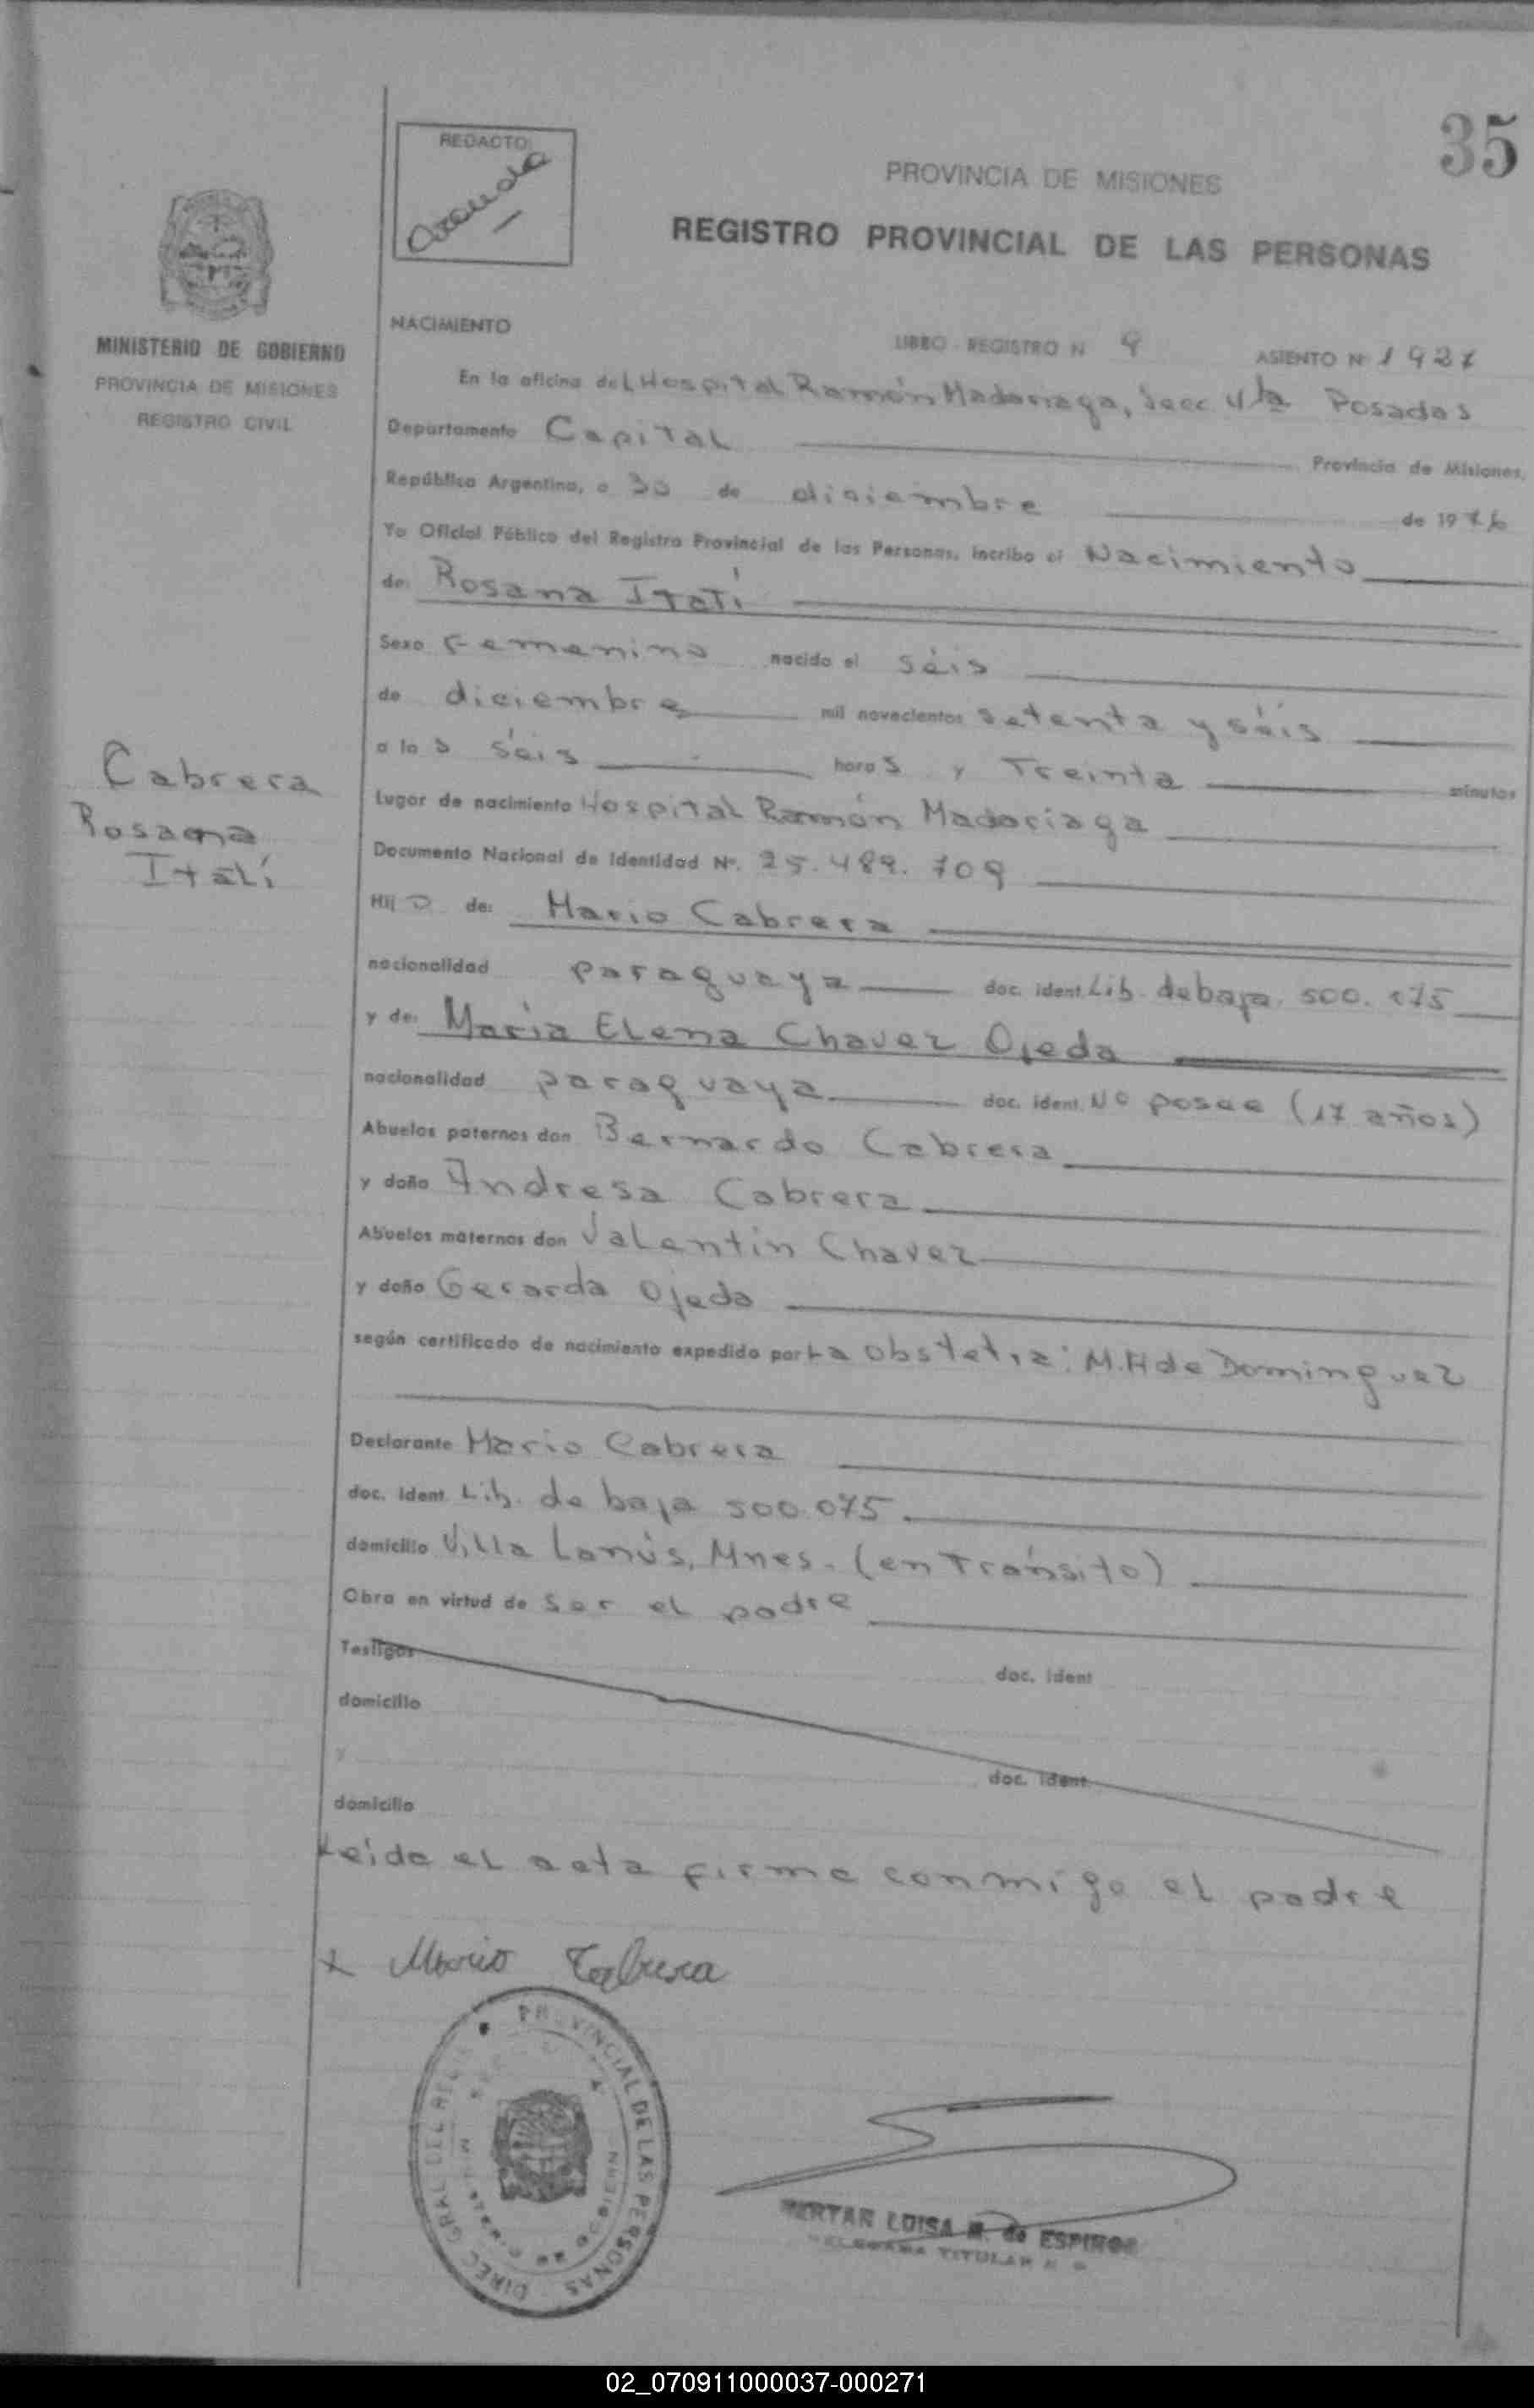 35
REDACTO:
PROVINCIA DE MISIONES
REGISTRO PROVINCIAL DE LAS PERSONAS
MINISTERIO DE GOBIERNO
PROVINCIA DE MISIONES
REGISTRO CIVIL
NACIMIENTO
LIBRO - REGISTRO N 9 ASIENTO Nº
En la oficina del Hospital Ramón Madariaga, Secc. Posadas
Departamento Capital Provincia de Misiones,
República Argentina, a 30 de diciembre de 1976
Yo Oficial Público del Registro Provincial de las Personas, incribo el Nacimiento
de: Rosana Itatí
Sexo Femenino nacido el séis
de diciembre mil novecientos setenta y séis
a las séis horas y Treinta minutos
Cabrera
Rosana
Itatí
Lugar de nacimiento Hospital Ramón Madariaga
Documento Nacional de Identidad Nº. 25.489.709
Hijo de: Mario Cabrera
nacionalidad paraguaya doc. ident. Lib. de baja. 500.075
y de: María Elena Chavez Ojeda
nacionalidad paraguaya doc. ident. No posee (17 años)
Abuelos paternos don Bernardo Cabrera
y doña Andresa Cabrera
Abuelos maternos don Valentín Chavez
y doña Gerarda Ojeda
según certificado de nacimiento expedido por La M.H de Dominguez
Declarante Mario Cabrera
doc. ident. Lib. de baja 500.075.
domicilio Villa Lanús, Mnes. (en Tránsito)
Obra en virtud de ser el padre
Testigos doc. ident
domicilio
y doc. ident
domicilio
Leida el acta firma conmigo el padre
x Mario Cabrera
DIREC. GRAL. DEL REGIS. PROVINCIAL DE LAS PERSONAS
MINISTERIO DE GOBIERNO
LUISA de ESPINOZA
TITULAR
02_070911000037-000271